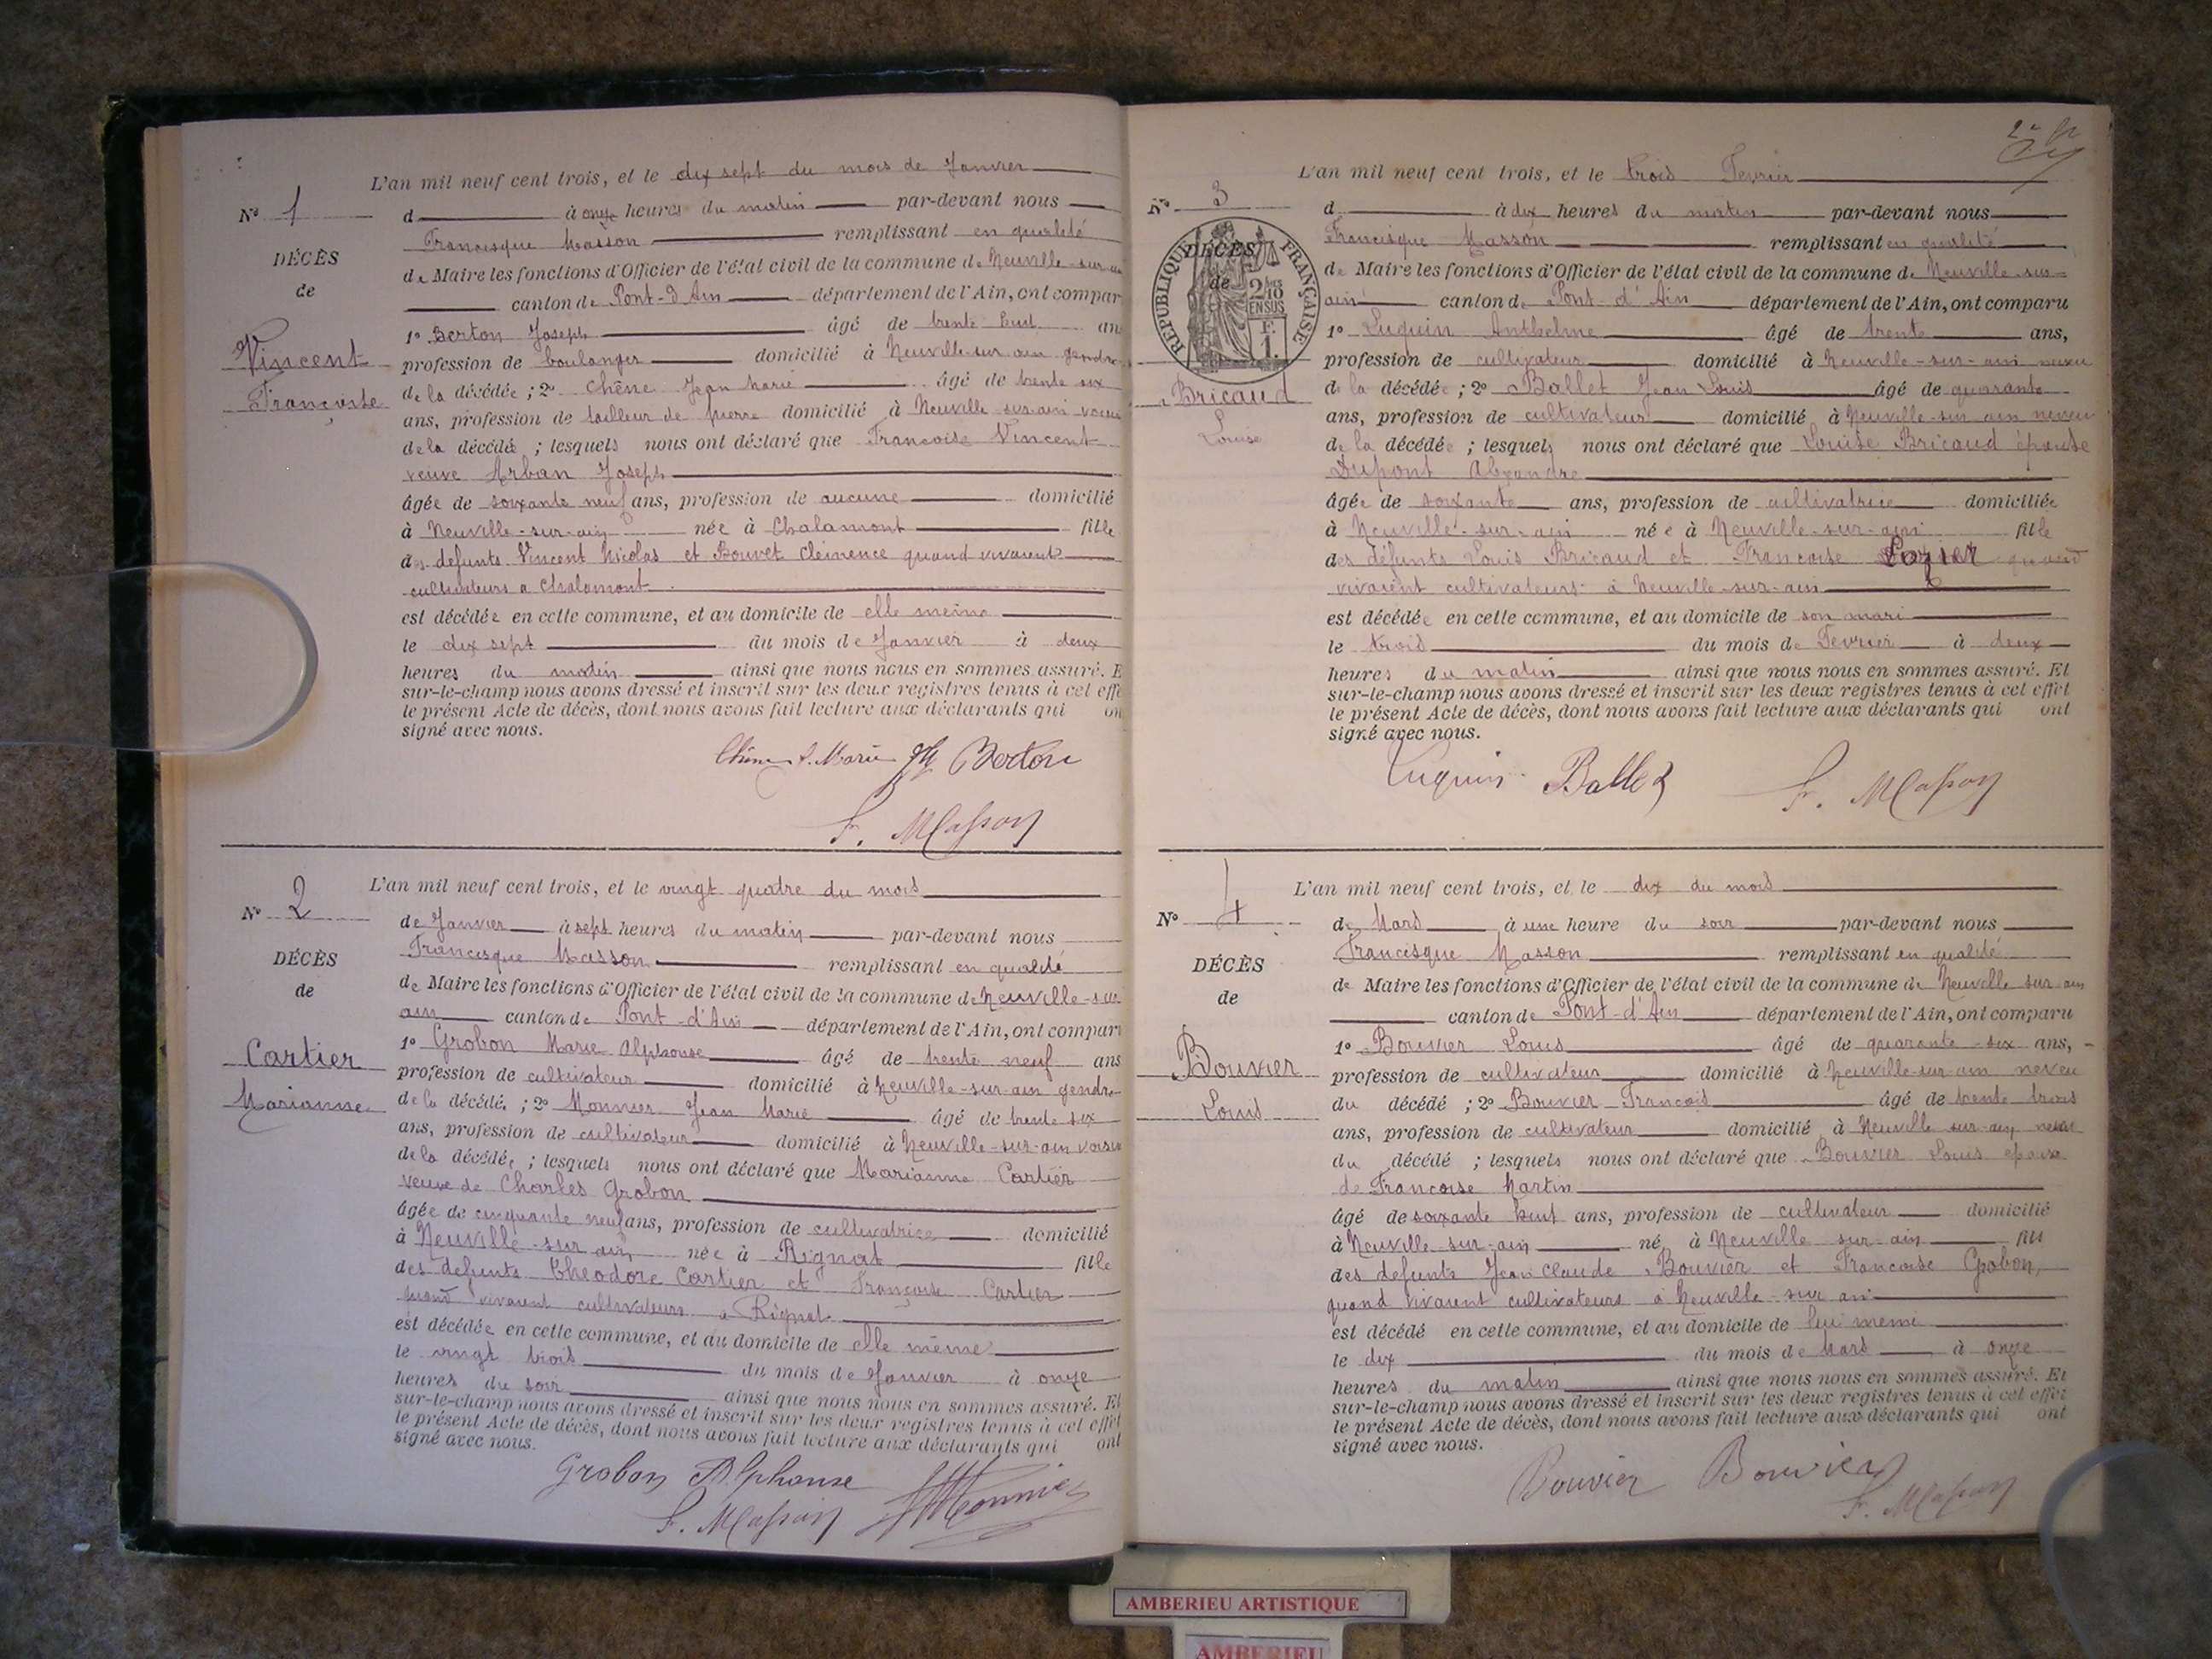 L'an mil neuf cent trois, et le dix sept du mois de Janvier
N° 1
d à onze heures du matin par-devant nous
Francisque Masson remplissant en qualité
DÉCÈS
de
de Maire les fonctions d'Officier de l'état civil de la commune de Neuville-sur-ain
canton de Pont-d'Ain département de l'Ain, ont compar
1° Berton Joseph âgé de trente huit ans
Vincent
Françoise
profession de boulanger domicilié à Neuville-sur ain gendre
de la décédée ; 2° Chêne Jean Marie âgé de trente six
ans, profession de tailleur de pierre domicilié à Neuville-sur-ain voisin
de la décédée ; lesquels nous ont déclaré que Francoise Vincent
veuve Arban Joseph
âgée de soixante neuf ans, profession de aucune domicilié
à Neuville-sur-ain née à Chalamont fille
des defunts Vincent Nicolas et Bouvet Clémence quand vivaient
cultivateurs a Chalamont
est décédée en cette commune, et au domicile de elle meme
le dix sept du mois de Janvier à deux
heures du matin ainsi que nous nous en sommes assuré. E
sur-le-champ nous avons dressé et inscrit sur les deux registres tenus à cet effe
le présent Acte de décès, dont nous avons fait lecture aux déclarants qui on
signé avec nous.
Chêne J. Marie Jh Berton
F. Masson
L'an mil neuf cent trois, et le vingt quatre du mois
N° 2
de Janvier à sept heures du matin par-devant nous
Francisque Masson remplissant en qualité
DÉCÈS
de
de Maire les fonctions d'Officier de l'état civil de la commune de Neuville-sur
ain canton de Pont-d'Ain département de l'Ain, ont compar
1° Grobon Marie Alphonse âgé de trente neuf ans
Cartier
Marianne
profession de cultivateur domicilié à Neuville-sur-ain gendre
de la décédé. ; 2° Monnier Jean Marie âgé de trente six
ans, profession de cultivateur domicilié à Neuville-sur-ain voisin
de la décédée ; lesquels nous ont déclaré que Marianne Cartier
veuve de Charles Grobon
âgée de cinquante neuf ans, profession de cultivatrice domicilié
à Neuville-sur ain née à Rignat fille
des defunts Theodore Cartier et Françoise Cartier
quand vivaient cultivateurs a Rignat
est décédée en cette commune, et au domicile de elle même
le vingt trois du mois de Janvier à onze
heures du soir ainsi que nous nous en sommes assuré. Et
sur-le-champ nous avons dressé et inscrit sur les deux registres tenus à cet effet
le présent Acte de décès, dont nous avons fait lecture aux déclarants qui ont
signé avec nous.
Grobon Alphonse
F. Masson JM Monnier
L'an mil neuf cent trois, et le trois Fevrier
N° 3
d à dix heures du matin par-devant nous
Francisque Masson remplissant en qualité
DÉCÈS
de
RÉPUBLIQUE FRANÇAISE
2/10 EN SUS
F. 1.
de Maire les fonctions d'Officier de l'état civil de la commune de Neuville-sur-
ain canton de Pont-d'Ain département de l'Ain, ont comparu
1° Luquin Anthelme âgé de trente ans,
Bricaud
Louise
profession de cultivateur domicilié à Neuville-sur-ain neveu
de la décédée ; 2° Ballet Jean Louis âgé de quarante
ans, profession de cultivateur domicilié à Neuville-sur ain neveu
de la décédée ; lesquels nous ont déclaré que Louise Bricaud épouse
Dupont Alexandre
âgée de soixante ans, profession de cultivatrice domiciliée
à Neuville-sur-ain née à Neuville-sur-ain fille
des défunts Louis Bricaud et Francoise Lozier quand
vivaient cultivateurs à Neuville-sur-ain
est décédée en cette commune, et au domicile de son mari
le trois du mois de Fevrier à deux
heures du matin ainsi que nous nous en sommes assuré. Et
sur-le-champ nous avons dressé et inscrit sur les deux registres tenus à cet effet
le présent Acte de décès, dont nous avons fait lecture aux déclarants qui ont
signé avec nous.
Luquin Ballet F. Masson
L'an mil neuf cent trois, et le dix du mois
N° 4
de Mars à une heure du soir par-devant nous
Francisque Masson remplissant en qualité
DÉCÈS
de
de Maire les fonctions d'Officier de l'état civil de la commune de Neuville sur ain
canton de Pont-d'Ain département de l'Ain, ont comparu
1° Bouvier Louis âgé de quarante-six ans,
Bouvier
Louis
profession de cultivateur domicilié à Neuville-sur-ain neveu
du décédé ; 2° Bouvier François âgé de trente trois
ans, profession de cultivateur domicilié à Neuville sur-ain neveu
du décédé ; lesquels nous ont déclaré que Bouvier Louis epoux
de Francoise Martin
âgé de soixante huit ans, profession de cultivateur domicilié
à Neuville-sur-ain né à Neuville sur-ain fils
des defunts Jean Claude Bouvier et Francoise Grobon,
quand vivaient cultivateurs à Neuville-sur ain
est décédé en cette commune, et au domicile de lui meme
le dix du mois de Mars à onze
heures du matin ainsi que nous nous en sommes assuré. Et
sur-le-champ nous avons dressé et inscrit sur les deux registres tenus à cet effet
le présent Acte de décès, dont nous avons fait lecture aux déclarants qui ont
signé avec nous.
Bouvier Bouvier
F. Masson
AMBERIEU ARTISTIQUE
AMBERIEU